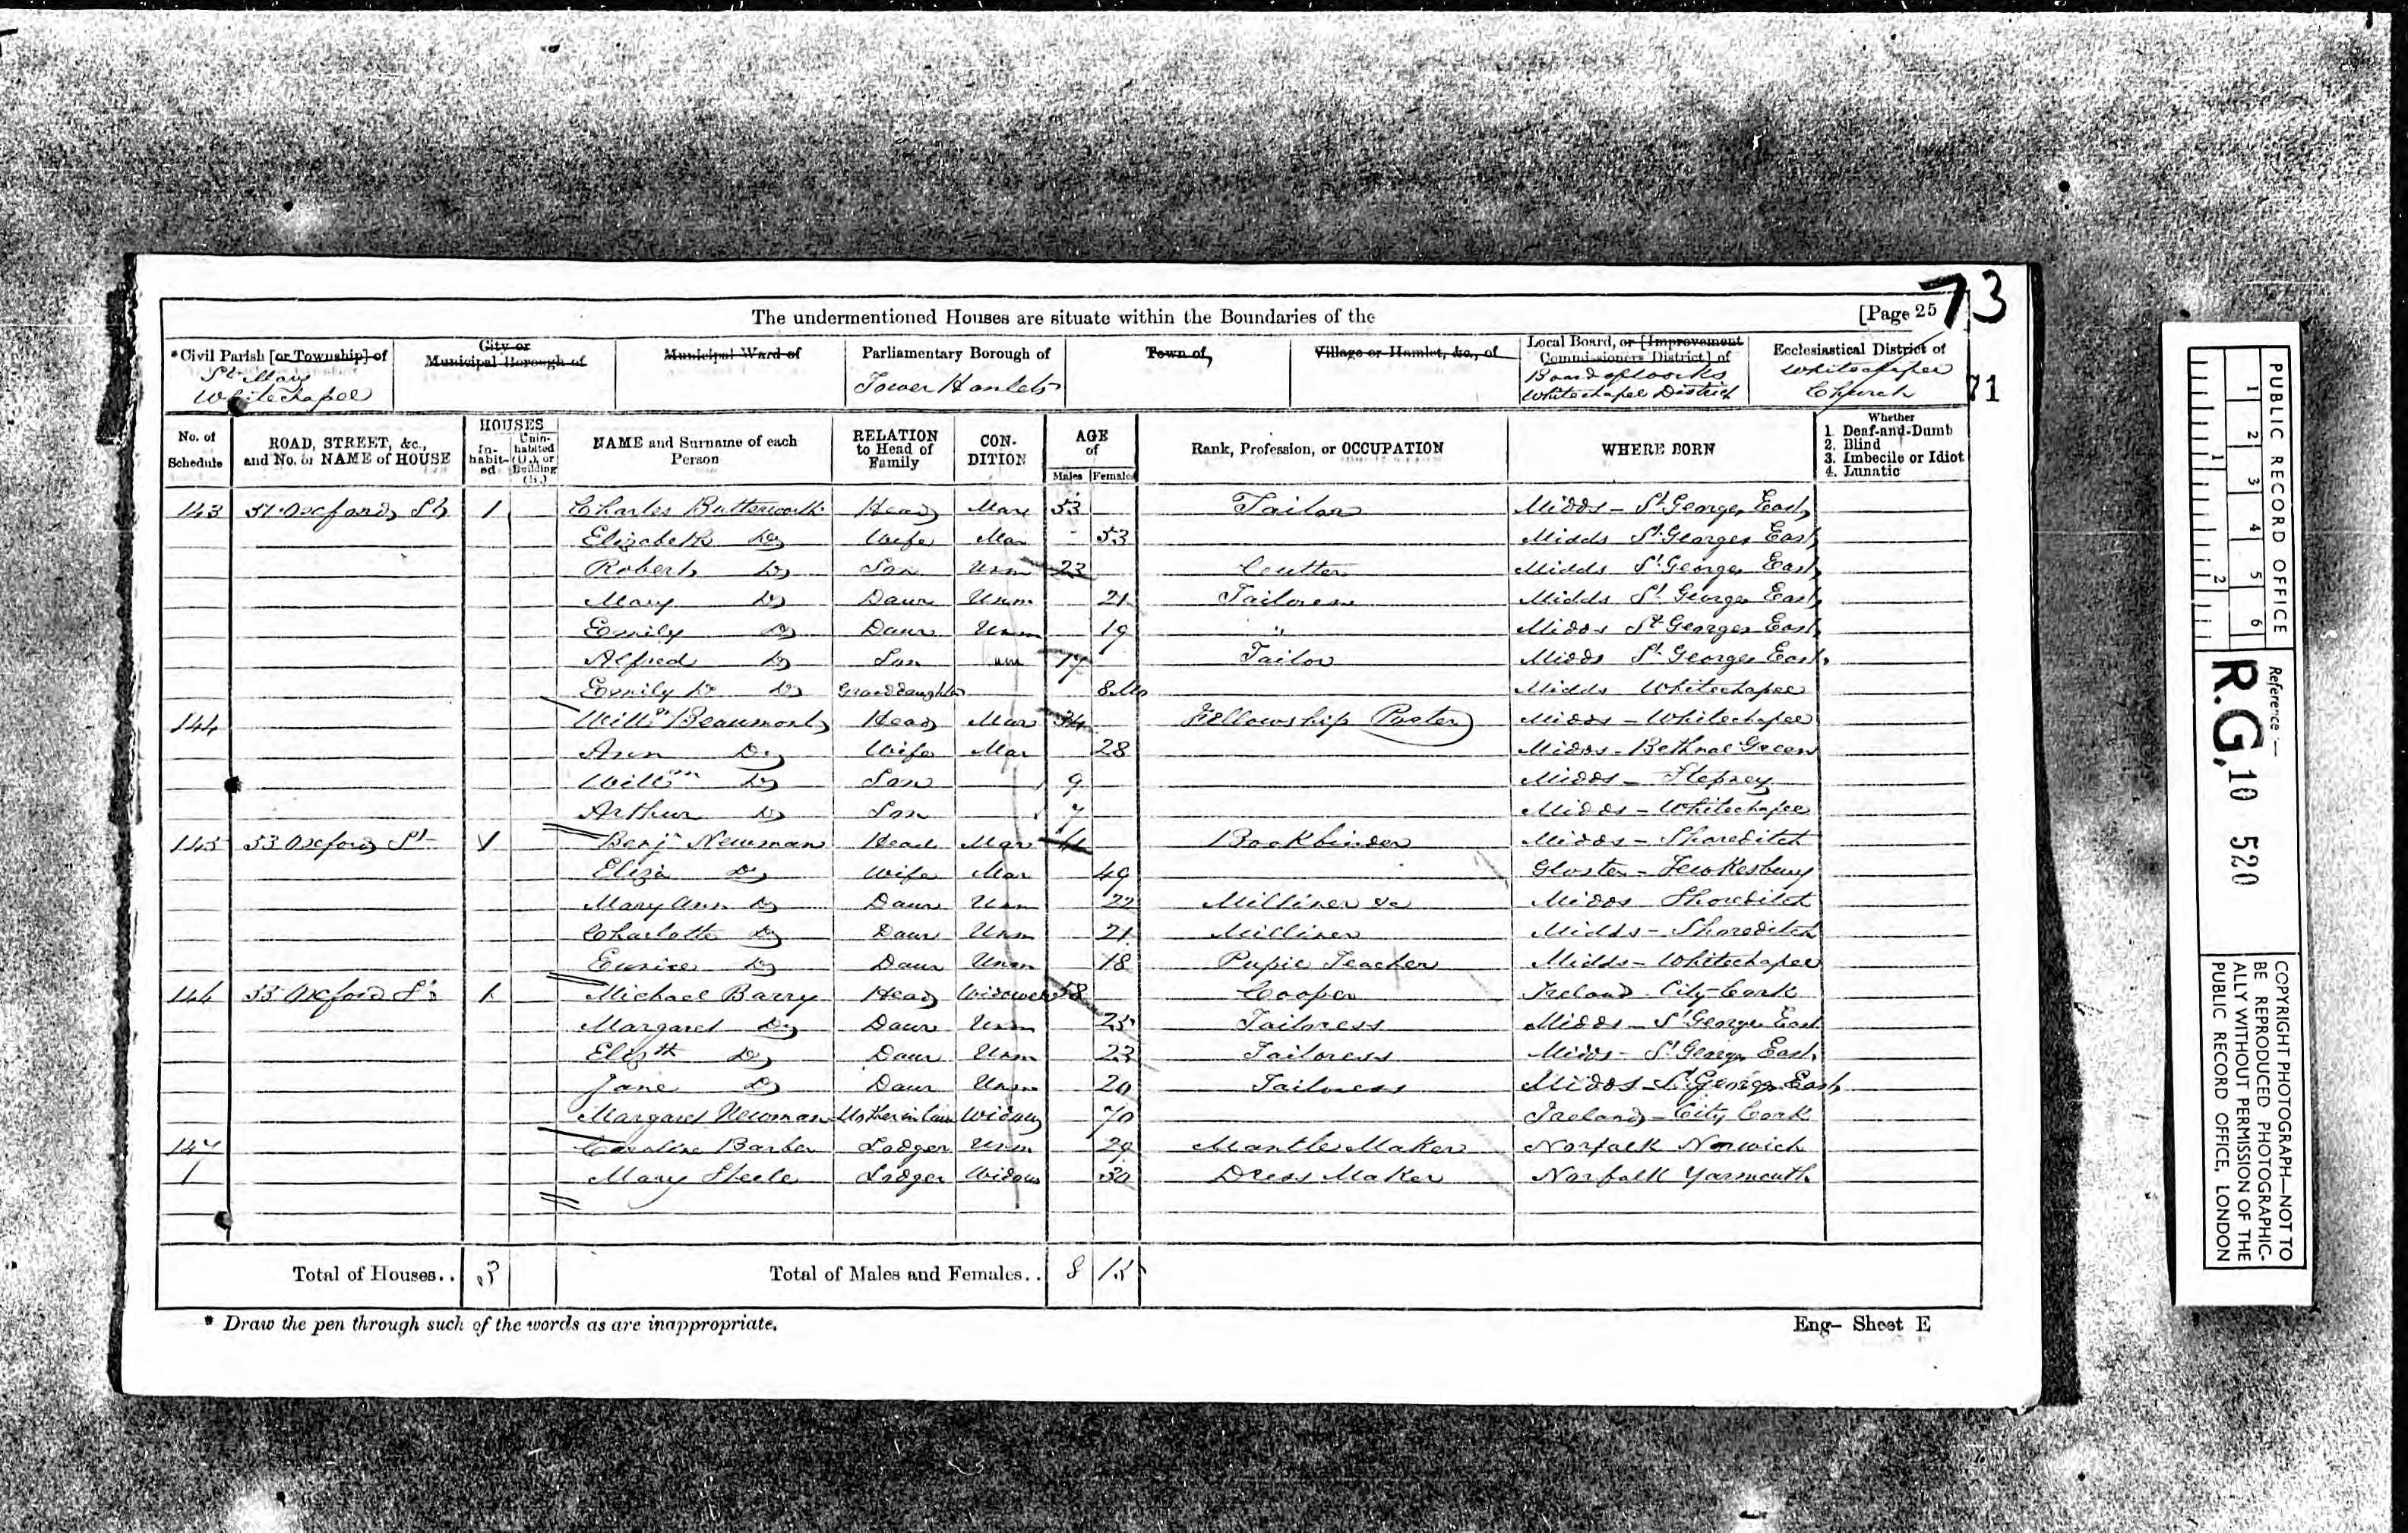 73
The undermentioned Houses are situate within the Boundaries of the [Page 25
*Civil Parish [or Township] of City or Municipal Borough of Municipal Ward of Parliamentary Borough of Town of, Village or Hamlet, &c., of Local Board, or [Improvement Commissioners District] of Ecclesiastical District of
St Mary Whitechapel Tower Hamlets Board of Works Whitechapel District Whitechapel Church
71
No. of Schedule ROAD, STREET, &c., and No. or NAME of HOUSE HOUSES In-habit-ed Unin-habited (U.), or Building (B.) NAME and Surname of each Person RELATION to Head of Family CON-DITION AGE of Males Females Rank, Profession, or OCCUPATION WHERE BORN Whether 1. Deaf-and-Dumb 2. Blind 3. Imbecile or Idiot 4. Lunatic
143 51 Oxford St 1 Charles Butterworth Head Mar 53 Tailor Midds - St George East
Elizabeth Do Wife Mar 53 Midds St Georges East
Robert Do Son Unm 23 Cutter Midds St George East
Mary Do Daur Unm 21 Tailoress Midds St George East
Emily Do Daur Unm 19 " Midds St Georges East
Alfred Do Son um 17 Tailor Midds St Georges East
Emily Do Granddaughter 8 Mo Midds Whitechapel
144 Willm Beaumont Head Mar 34 Fellowship Porter Midds - Whitechapel
Ann Do Wife Mar 28 Midds - Bethnal Green
Willm Do Son 9 Midds - Stepney
Arthur Do Son 7 Midds - Whitechapel
145 53 Oxford St 1 Benjn Newman Head Mar Bookbinder Midds - Shoreditch
Eliza Do Wife Mar 49 Gloster - Tewkesbury
Mary Ann Do Daur Unm 22 Milliner &c Midds Shoreditch
Charlotte Do Daur Unm 21 Milliner Midds - Shoreditch
Eunice Do Daur Unm 18 Pupil Teacher Midds - Whitechapel
146 55 Oxford St 1 Michael Barry Head Widower 58 Cooper Ireland City Cork
Margaret Do Daur Unm 25 Tailoress Midds - St George East
Elizth Do Daur Unm 23 Tailoress Midds - St George East
Jane Do Daur Unm 20 Tailoress Midds - St George East
Margaret Newman Mother in law Widow 70 Ireland - City Cork
147 Caroline Barber Lodger Unm 29 Mantle Maker Norfolk Norwich
/ Mary Steele Lodger Widow 30 Dress Maker Norfolk Yarmouth
Total of Houses.. 3 Total of Males and Females.. 8 15
* Draw the pen through such of the words as are inappropriate.
Eng- Sheet E
PUBLIC RECORD OFFICE
1 2 3 4 5 6
1 2
Reference:—
R.G. 10 520
COPYRIGHT PHOTOGRAPH—NOT TO
BE REPRODUCED PHOTOGRAPHIC-
ALLY WITHOUT PERMISSION OF THE
PUBLIC RECORD OFFICE, LONDON